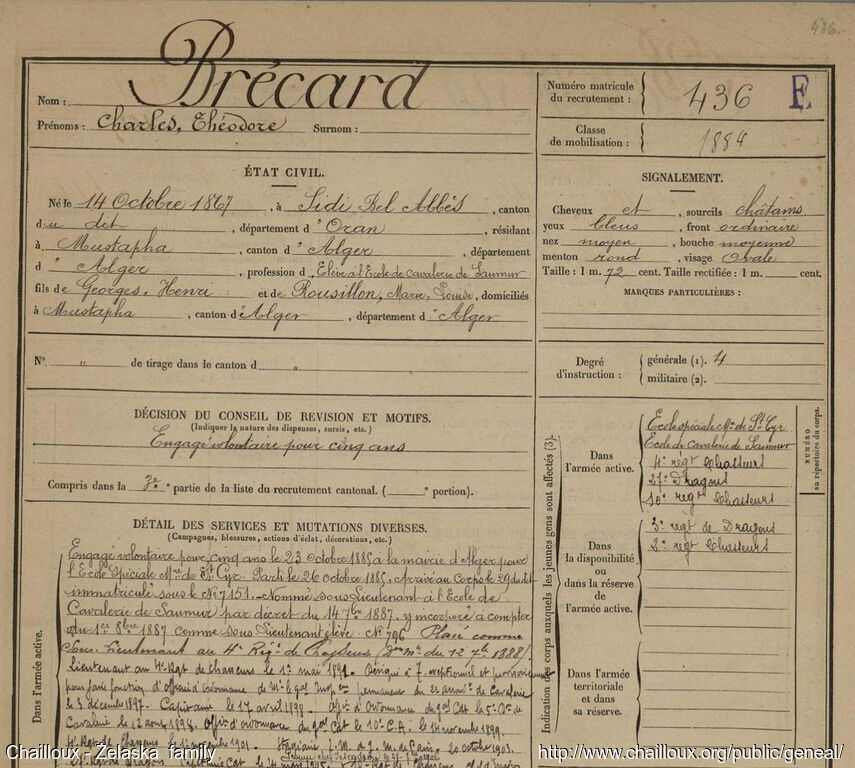 486.
Brécard
Nom :
Prénoms : Charles, Théodore Surnom :
Numéro matricule du recrutement : 436 E
Classe de mobilisation : 1884
ÉTAT CIVIL.
Né le 14 Octobre 1867, à Sidi Bel Abbès, canton
du dit, département d' Oran, résidant
à Mustapha, canton d' Alger, département
d' Alger, profession d' Elève à l'Ecole de Cavalerie de Saumur
fils de Georges, Henri et de Rousillon, Marie, Louise, domiciliés
à Mustapha, canton d' Alger, département d' Alger
N° " de tirage dans le canton d "
SIGNALEMENT.
Cheveux et, sourcils châtains
yeux bleus, front ordinaire
nez moyen, bouche moyenne
menton rond, visage Ovale
Taille : 1 m. 72 cent. Taille rectifiée : 1 m. cent.
MARQUES PARTICULIÈRES :
Degré d'instruction : générale (1). 4
militaire (2).
DÉCISION DU CONSEIL DE REVISION ET MOTIFS.
(Indiquer la nature des dispenses, sursis, etc.)
Engagé volontaire pour cinq ans
Compris dans la 3e partie de la liste du recrutement cantonal. ( e portion).
DÉTAIL DES SERVICES ET MUTATIONS DIVERSES.
(Campagnes, blessures, actions d'éclat, décorations, etc.)
Dans l'armée active.
Engagé volontaire pour cinq ans le 23 Octobre 1885 à la mairie d'Alger pour
l'Ecole Spéciale Mre de St Cyr. Parti le 26 octobre 1885, arrivé au Corps le 29 du dit
immatriculé sous le N° 7151. Nommé sous Lieutenant à l'Ecole de
Cavalerie de Saumur par décret du 14 7bre 1887, y incorporé à compter
du 1er 8bre 1887 comme sous Lieutenant élève N° 796 Placé comme
Sous Lieutenant au 4e Rég. de Chasseurs
Lieutenant au 4e Rgt de Chasseurs le 1er mai 1891.
pour faire fonction d'officier d'ordonnance de
le 3 décembre 1897. Capitaine le 17 avril 1898. Offr d'Ordonnance du gal Cdt la 5e Be de
Cavalerie le 12 août 1898. Offr d'ordonnance du gal Cdt le 10e C.A. le 14 novembre 1899.
4e Rgt de Chasseurs 1901. Stagiaire 20 octobre 1903.
Indication des corps auxquels les jeunes gens sont affectés (3).
NUMÉRO au répertoire du corps.
Dans l'armée active.
Ecole spéciale Mre de St Cyr
Ecole de Cavalerie de Saumur
4e régt Chasseurs
27e Dragons
10e régt Chasseurs
Dans la disponibilité ou dans la réserve de l'armée active.
3e regt de Dragons
2e regt Chasseurs
Dans l'armée territoriale et dans sa réserve.
Chailloux - Zelaska family
http://www.chailloux.org/public/geneal/